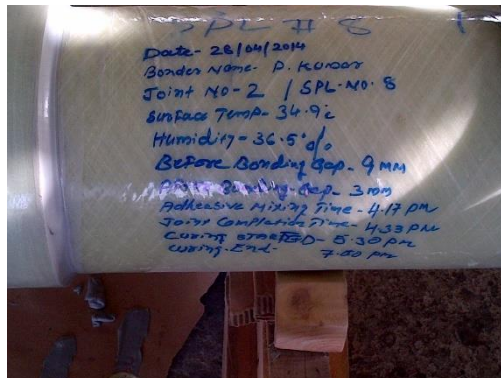 SPL # 8
Date- 28/04/2014
Bonder Name- P. Kumar
Joint NO-2 / SPL-NO. 8
Surface Temp- 34.9°c
Humidity- 36.5%
Before Bonding Gap- 9 MM
Bonding Gap- 3 mm
Adhessive Mixing Time- 4.17 PM
Joint Completion Time- 4.33 PM
Curing STARTED- 5.30 pm
Curing. End- 7.00 pm